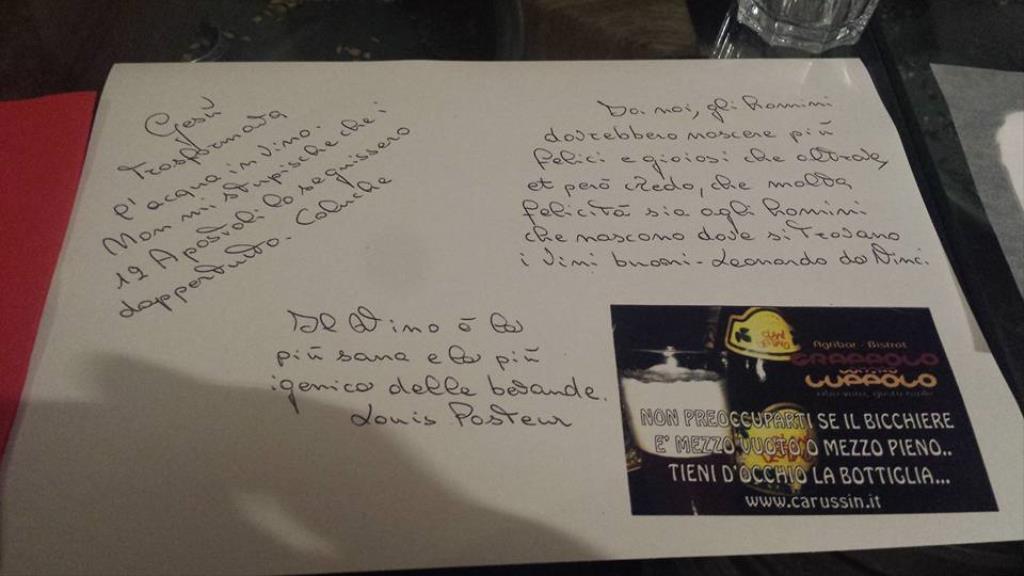 Gesù
trasformava
l'acqua in vino.
Non mi stupische che i
12 Apostoli lo seguissero
dappertutto. Coluche
Da noi, gli homini
dovrebbero nascere più
felici e gioiosi che altrove,
et però credo, che molta
felicità sia agli homini
che nascono dove si trovano
i vini buoni - Leonardo da Vinci.
Il vino è la
più sana e la più
igenica delle bevande.
Louis Pasteur
Agribar - Bistrot
GRAPPOLO
LUPPOLO
NON PREOCCUPARTI SE IL BICCHIERE
E' MEZZO VUOTO O MEZZO PIENO..
TIENI D'OCCHIO LA BOTTIGLIA...
www.carussin.it